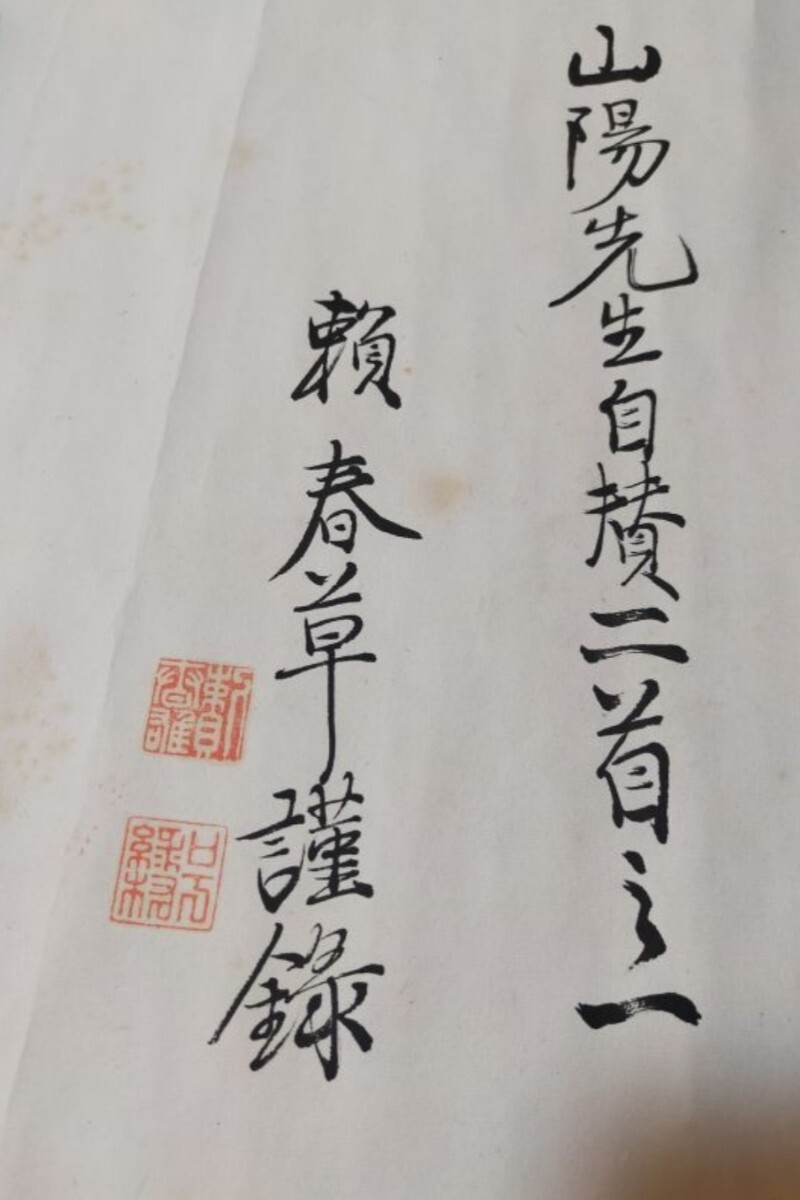 山陽先生自賛二首之一
賴春草謹錄